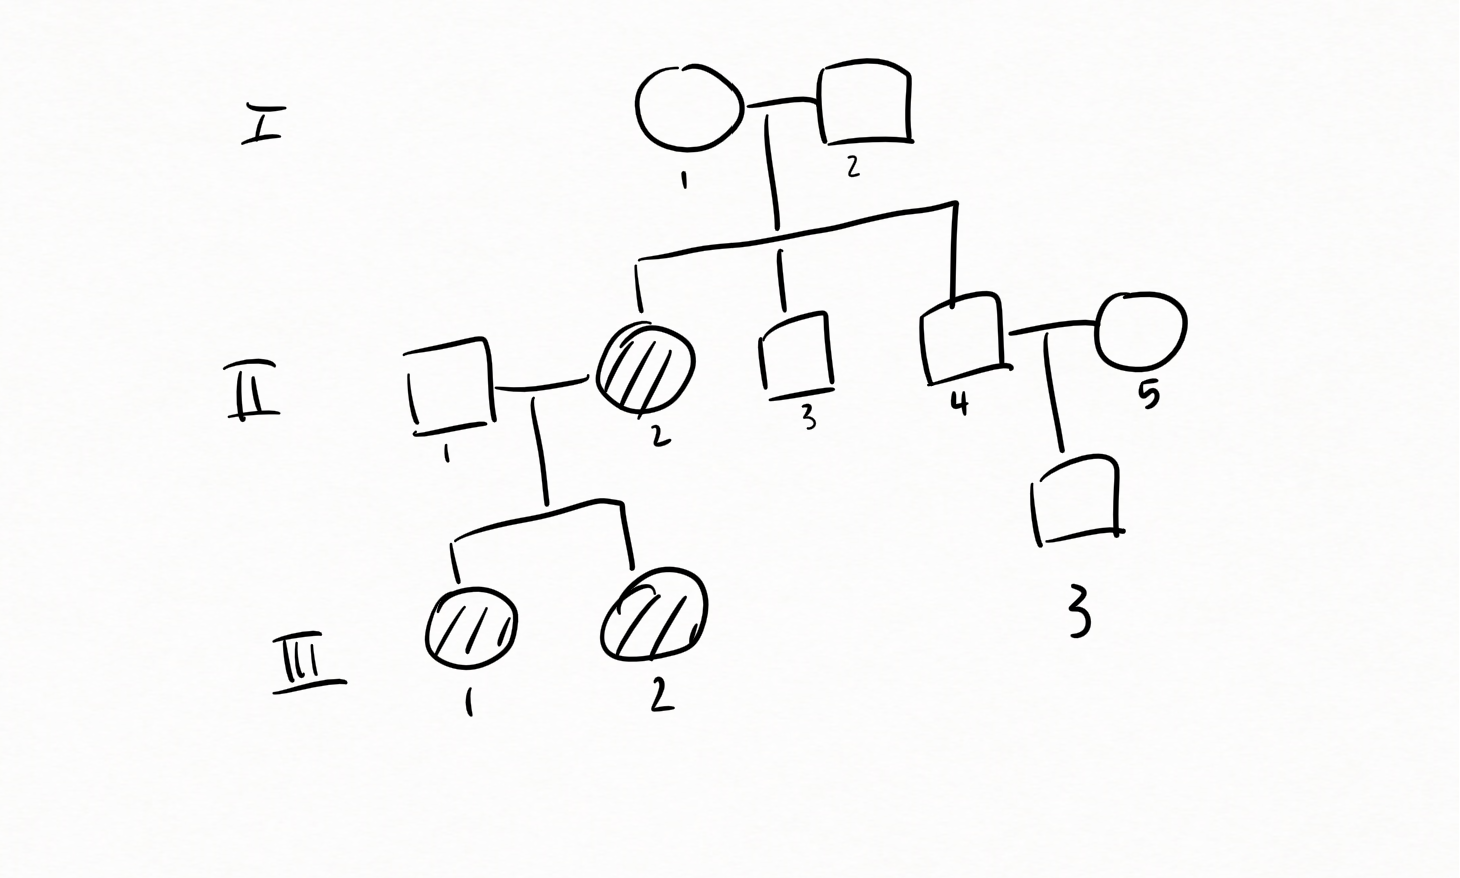 I
1 2
II
1 2 3 4 5
III
1 2 3